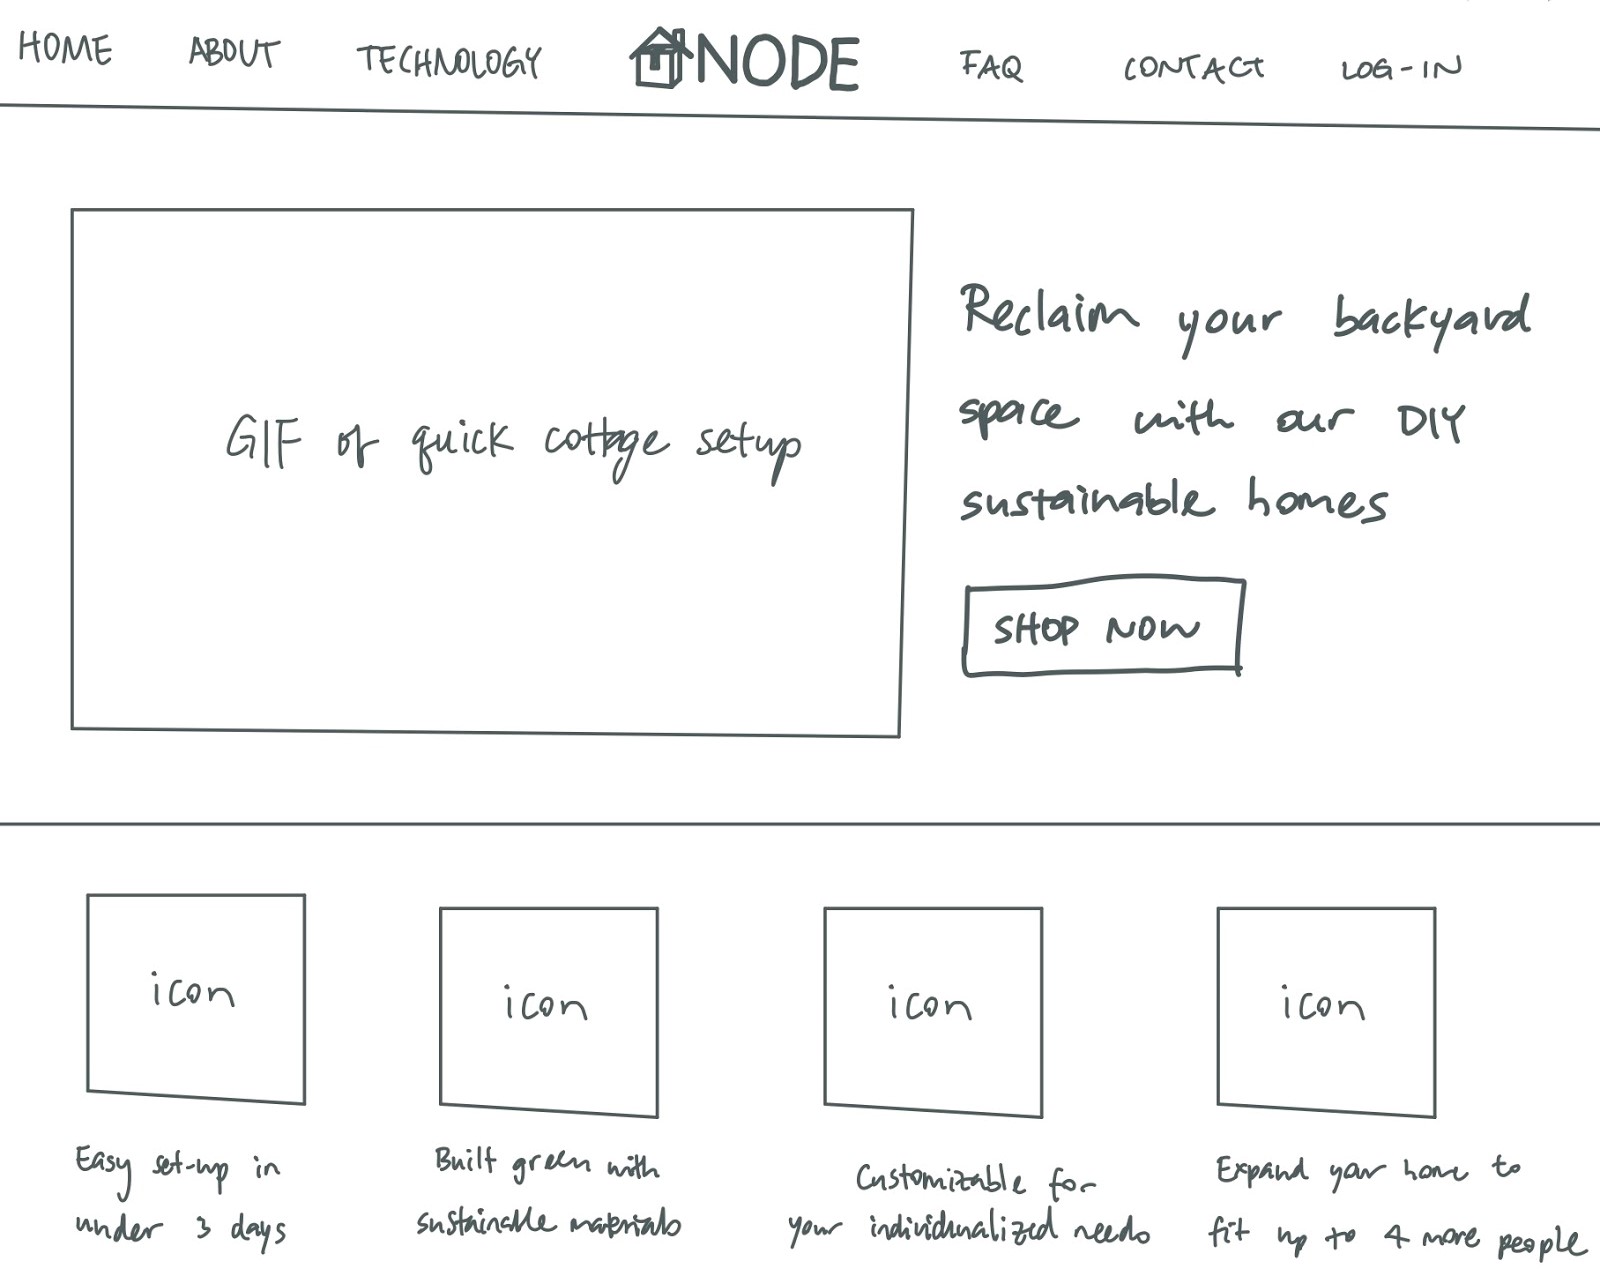 HOME ABOUT TECHNOLOGY NODE FAQ CONTACT LOG-IN
GIF of quick cottage setup
Reclaim your backyard
space with our DIY
sustainable homes
SHOP NOW
icon
Easy set-up in
under 3 days
icon
Built green with
sustainable materials
icon
Customizable for
your individualized needs
icon
Expand your home to
fit up to 4 more people